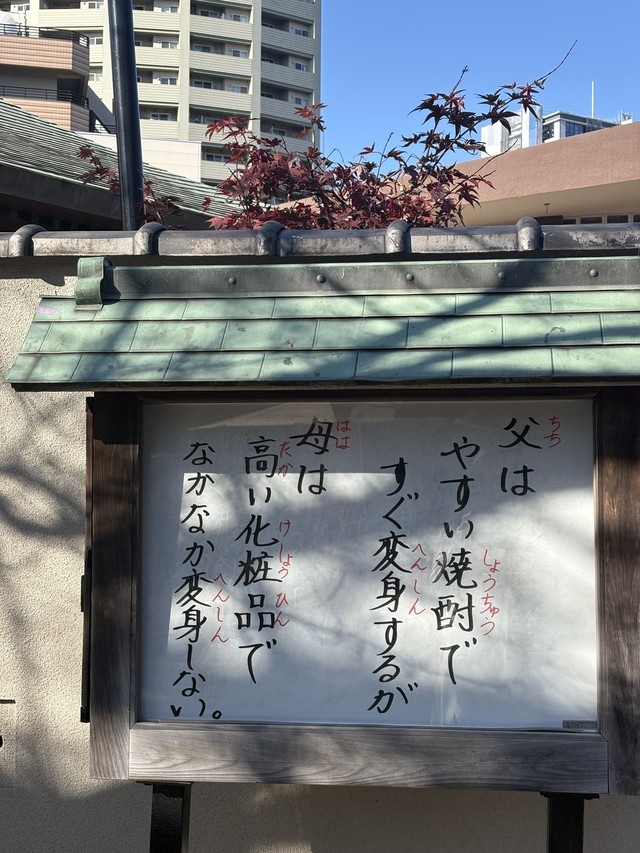 父は
やすい焼酎で
すぐ変身するが
母は
高い化粧品で
なかなか変身しない。
ちち
しょうちゅう
へんしん
はは
たか
けしょうひん
へんしん